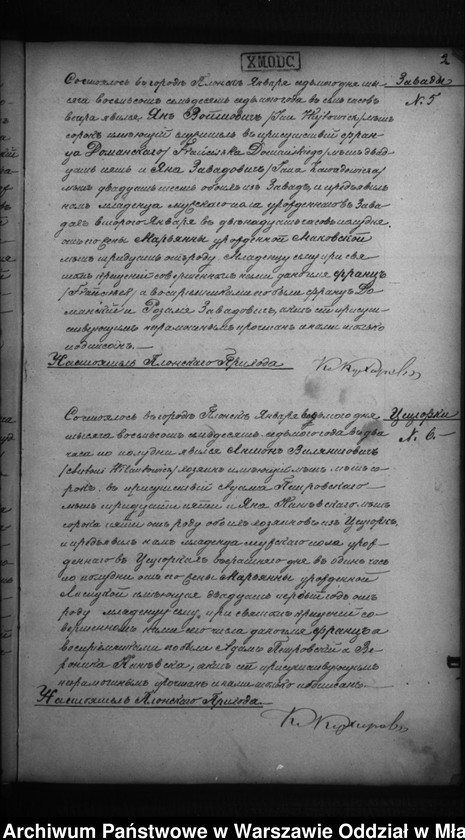 XMODC
2
Состоялось въ городѣ Плонскъ Января седьмого дня ты-
сяча восемьсотъ семьдесятъ седьмого года въ семь часовъ
вечера явился Янъ Войтовичъ /Jan Wojtowicz/ лѣтъ
сорокъ имѣющій служитель въ присутствіи Фран-
ца Доманскаго /Franciszka Domańskiego/ лѣтъ двад-
цать пять и Яна Завадовича /Jana Zawadowicza/
лѣтъ двадцать шесть обоихъ изъ Завадъ, и предъявилъ
намъ младенца мужескаго пола урожденнаго въ Зава-
дахъ второго Января въ двѣнадцать часовъ полудня,
отъ его жены Марьянны урожденной Маковской
лѣтъ тридцать отъ роду. Младенцу сему при свя-
томъ крещеніи совершенномъ нами дано имя Францъ
а воспріемниками его были Францъ До-
манскій и Розалія Завадовичъ, актъ сей присут-
ствующимъ неграмотнымъ прочтенъ а нами только
подписанъ.—
Настоятель Плонскаго Прихода
Завады
N. 5
Состоялось въ городѣ Плонскъ Января седьмого дня
тысяча восемьсотъ семьдесятъ седьмого года въ два
часа по полудни явился Антонъ
хозяинъ имѣющій лѣтъ
сорокъ въ присутствіи Адама Петровскаго
лѣтъ тридцать пять и Яна лѣтъ
сорокъ пять отъ роду обоихъ хозяиновъ изъ Цешорки,
и предъявилъ намъ младенца мужескаго пола урож-
деннаго въ Цешоркахъ вчерашняго дня въ одинъ часъ
по полудни отъ его жены Марьянны урожденной
имѣющая двадцать первый годъ отъ
роду младенцу сему при святомъ крещеніи со-
вершенномъ нами сего числа дано имя Францъ а
воспріемниками его были Адамъ Петровскій и Ве-
роника актъ сей присутствующимъ
неграмотнымъ прочтенъ и нами только подписанъ.—
Настоятель Плонскаго Прихода
Цешорки
N. 6.—
Archiwum Państwowe w Warszawie Oddział w Mła